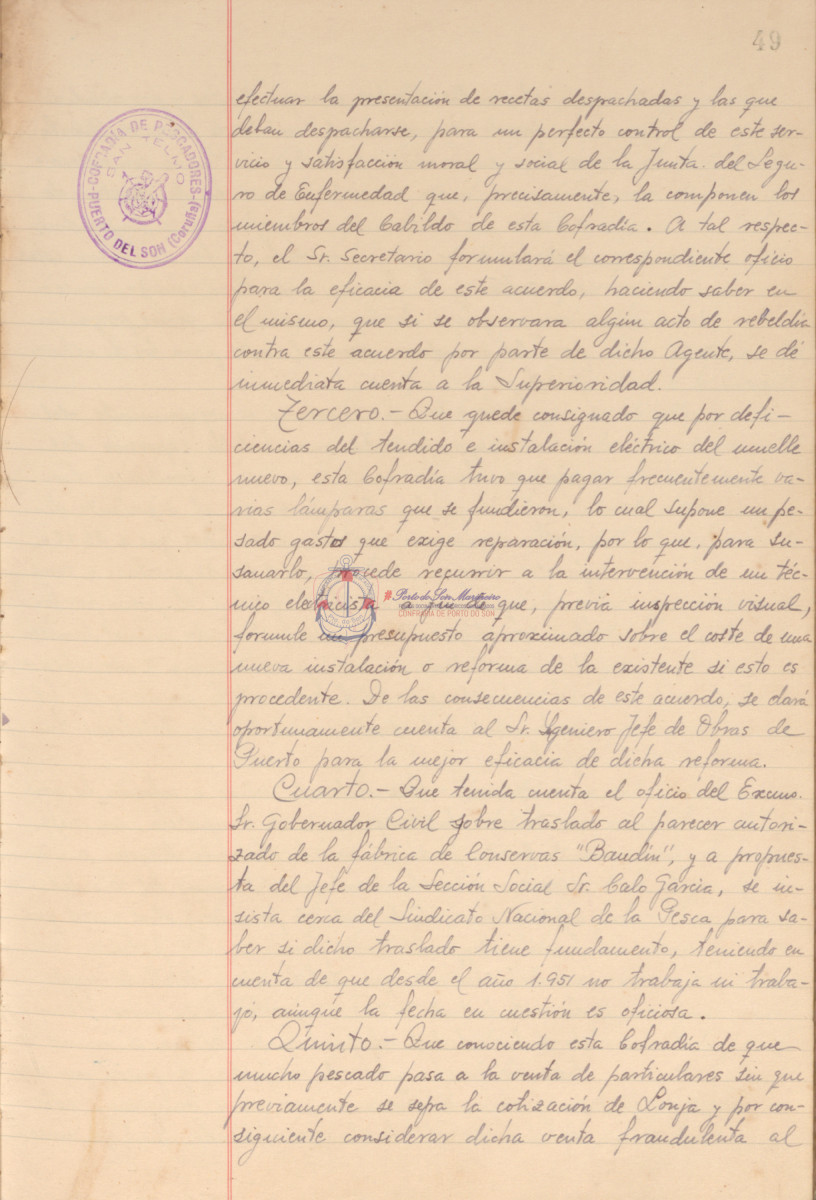 49
COFRADÍA DE PESCADORES
SAN TELMO
PUERTO DEL SON (Coruña)
efectuar la presentación de recetas despachadas y las que
deban despacharse, para un perfecto control de este ser-
vicio y satisfacción moral y social de la Junta del Segu-
ro de Enfermedad que, precisamente, la componen los
miembros del Cabildo de esta Cofradía. A tal respec-
to, el Sr. Secretario formulará el correspondiente oficio
para la eficacia de este acuerdo, haciendo saber en
el mismo, que si se observara algún acto de rebeldía
contra este acuerdo por parte de dicho Agente, se dé
inmediata cuenta a la Superioridad.
Tercero.- Que quede consignado que por defi-
ciencias del tendido e instalación eléctrico del muelle
nuevo, esta Cofradía tuvo que pagar frecuentemente va-
rias lámparas que se fundieron, lo cual supone un pe-
sado gastos que exige reparación, por lo que, para su-
sanarlo, procede recurrir a la intervención de un téc-
nico electricista a fin de que, previa inspección visual,
formule un presupuesto aproximado sobre el coste de una
nueva instalación o reforma de la existente si esto es
procedente. De las consecuencias de este acuerdo, se dará
oportunamente cuenta al Sr. Igeniero Jefe de Obras de
Puerto para la mejor eficacia de dicha reforma.
Cuarto.- Que tenida cuenta el oficio del Excmo.
Sr. Gobernador Civil sobre traslado al parecer autori-
zado de la fábrica de Conservas "Baudín", y a propues-
ta del Jefe de la Sección Social Sr. Calo García, se in-
sista cerca del Sindicato Nacional de la Pesca para sa-
ber si dicho traslado tiene fundamento, teniendo en
cuenta de que desde el año 1.951 no trabaja ni traba-
jó, aúnqúe la fecha en cuestión es oficiosa.
Quinto.- Que conociendo esta Cofradía de que
mucho pescado pasa a la venta de particulares sin que
previamente se sepa la cotización de Lonja y por con-
siguiente considerar dicha venta fraudulenta al
Porto do Son Mariñeiro
CONFRARÍA DE PORTO DO SON